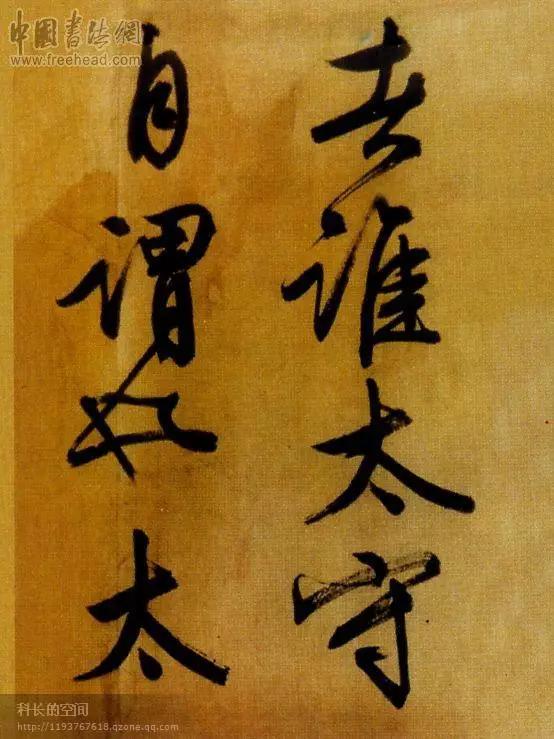 中國書法網
www.freehead.com
者誰太守
自謂也太
科长的空间
http://1193767618.qzone.qq.com